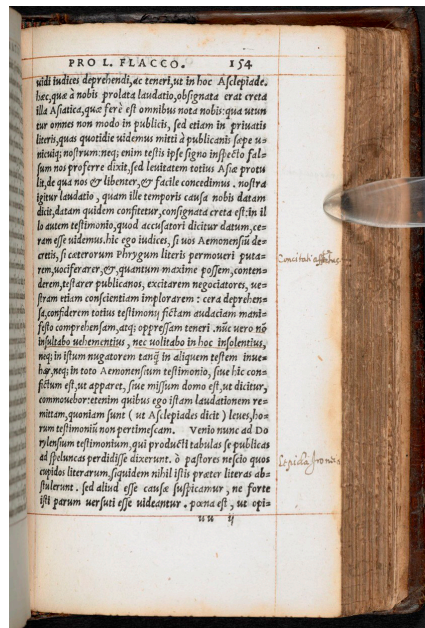 PRO L. FLACCO. 154
uidi iudices deprehendi, ac teneri, ut in hoc Asclepiade.
hæc, quæ à nobis prolata laudatio, obsignata erat creta
illa Asiatica, quæ ferè est omnibus nota nobis: qua utun
tur omnes non modo in publicis, sed etiam in priuatis
literis, quas quotidie uidemus mitti à publicanis sæpe u-
nicuiq; nostrum: neq; enim testis ipse signo inspecto fal-
sum nos proferre dixit, sed leuitatem totius Asiæ protu
lit, de qua nos & libenter, & facile concedimus. nostra
igitur laudatio, quam ille temporis causa nobis datam
dicit, datam quidem confitetur, consignata creta est: in il
lo autem testimonio, quod accusatori dicitur datum, ce-
ram esse uidemus. hic ego iudices, si uos Aemonensiũ de-
cretis, si cæterorum Phrygum literis permoueri puta-
rem, uociferarer, &, quantum maxime possem, conten-
derem, testarer publicanos, excitarem negociatores, ue-
stram etiam conscientiam implorarem: cera deprehen-
sa, confiderem totius testimonij fictam audaciam mani-
festo comprehensam, atq; oppressam teneri. nũc uero nõ
insultabo uehementius, nec uolitabo in hoc insolentius,
neq; in istum nugatorem tanq̃ in aliquem testem inue-
har, neq; in toto Aemonensium testimonio, siue hic con-
fictum est, ut apparet, siue missum domo est, ut dicitur,
commouebor: etenim quibus ego istam laudationem re-
mittam, quoniam sunt (ut Asclepiades dicit) leues, ho-
rum testimoniũ non pertimescam. Venio nunc ad Do
rylensium testimonium, qui producti tabulas se publicas
ad speluncas perdidisse dixerunt. ò pastores nescio quos
cupidos literarum, siquidem nihil istis præter literas ab-
stulerunt. sed aliud esse causæ suspicamur, ne forte
isti parum uersuti esse uideantur. pœna est, ut opi-
uu ij
Concitati affectus
Lepida Ironia